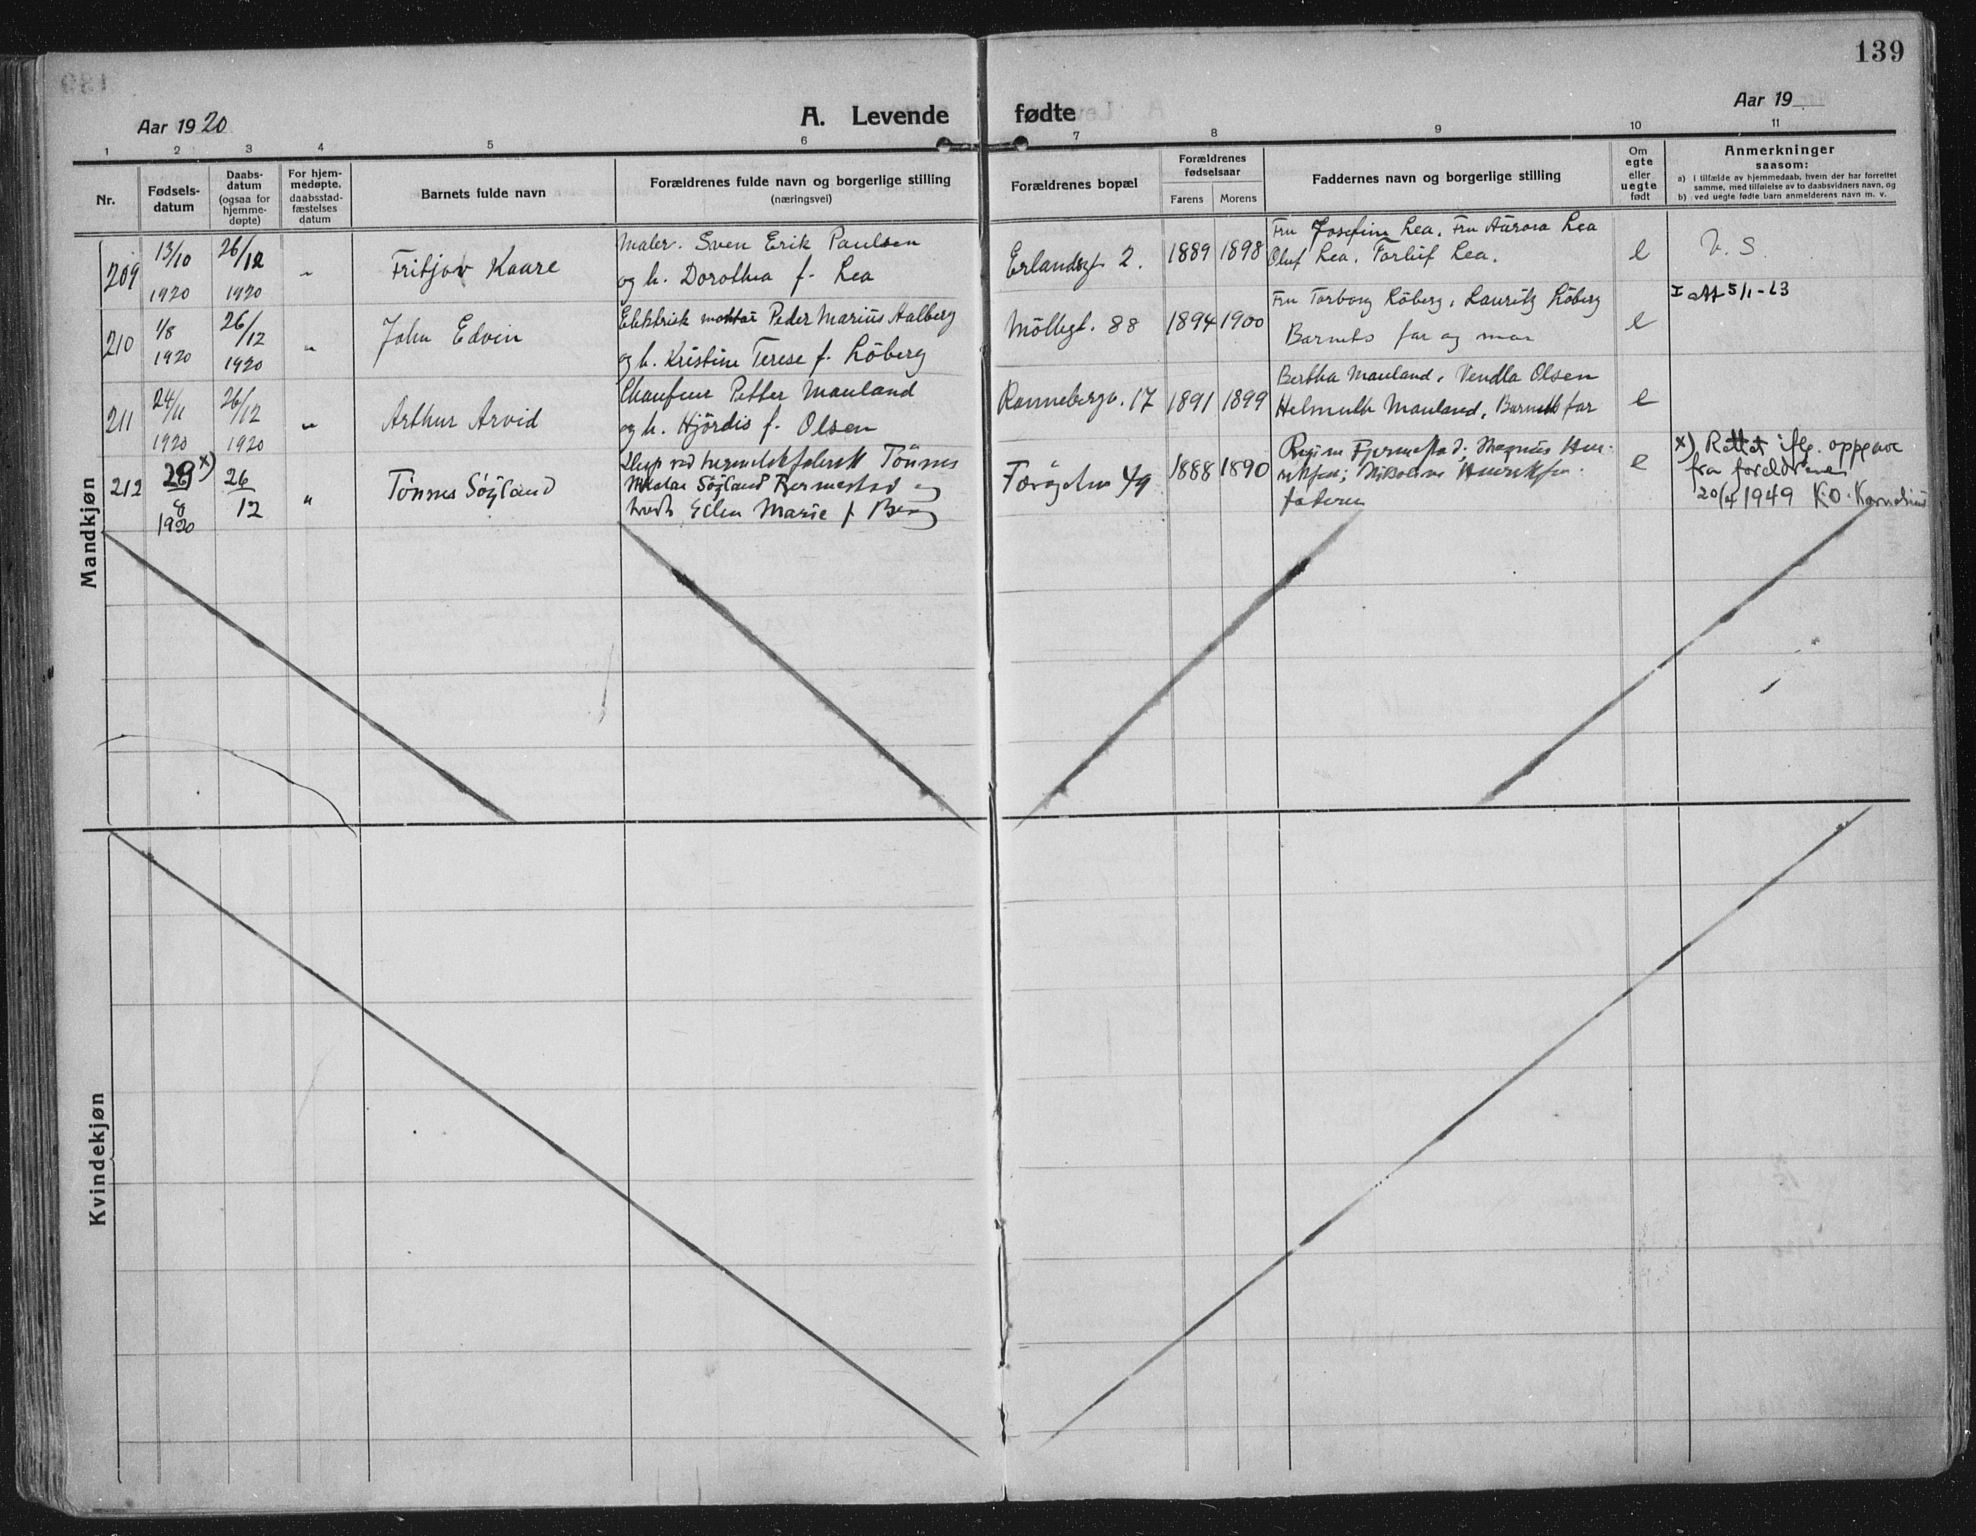 139
Aar 1920
A. Levende fødte
Aar 19
1 2 3 4 5 6 7 8 9 10 11
Nr.
Fødsels-
datum
Daabs-
datum
(ogsaa for
hjemme-
døpte)
For hjem-
medøpte,
daabsstad-
fæstelses
datum
Barnets fulde navn
Forældrenes fulde navn og borgerlige stilling
(næringsvei)
Forældrenes bopæl
Forældrenes
fødselsaar
Farens Morens
Faddernes navn og borgerlige stilling
Om
egte
eller
uegte
født
Anmerkninger
saasom:
a) i tilfælde av hjemmedaab, hvem der har forrettet
samme, med tilføielse av to daabsvidners navn, og
b) ved uegte fødte barn anmelderens navn m. v.
Mandkjøn
209
13/10
1920
26/12
1920
"
Fritjov Kaare
Maler. Sven Erik Paulsen
og h. Dorothea f. Lea
Erlandsgt. 2.
1889 1898
Fru Josefine Lea, Fru Aurora Lea
Oluf Lea, Torleif Lea.
e
V. S.
210
1/8
1920
26/12
1920
"
John Edvin
Elektrisk montør Peder Marius Aalberg
og h. Kristine Terese f. Löberg
Möllegt. 88
1894 1900
Fru Torborg Löberg, Lauritz Löberg
Barnets far og mor
e
I att 5/1-23
211
24/11
1920
26/12
1920
"
Arthur Arvid
Chaufeur Petter Mauland
og h. Hjördis f. Olsen
Rannebergv. 17
1891 1899
Bertha Mauland, Vendla Olsen
Helmuth Mauland, Barnets far
e
212
28 x)
8
1920
26
12
"
Tönnes Söyland
ved hermetikfabrikk Tönnes
Nikolai Söyland Fjermestad og
hustr. Marie f. Berg
49
1888 1890
Fjermestad; Magnus Hen-
riksen; Nikoline Henriksen
faderen
e
x) Rettet iflg. oppgave
fra foreldrene
20/4 1949 K.O. Kornelius
Kvindekjøn